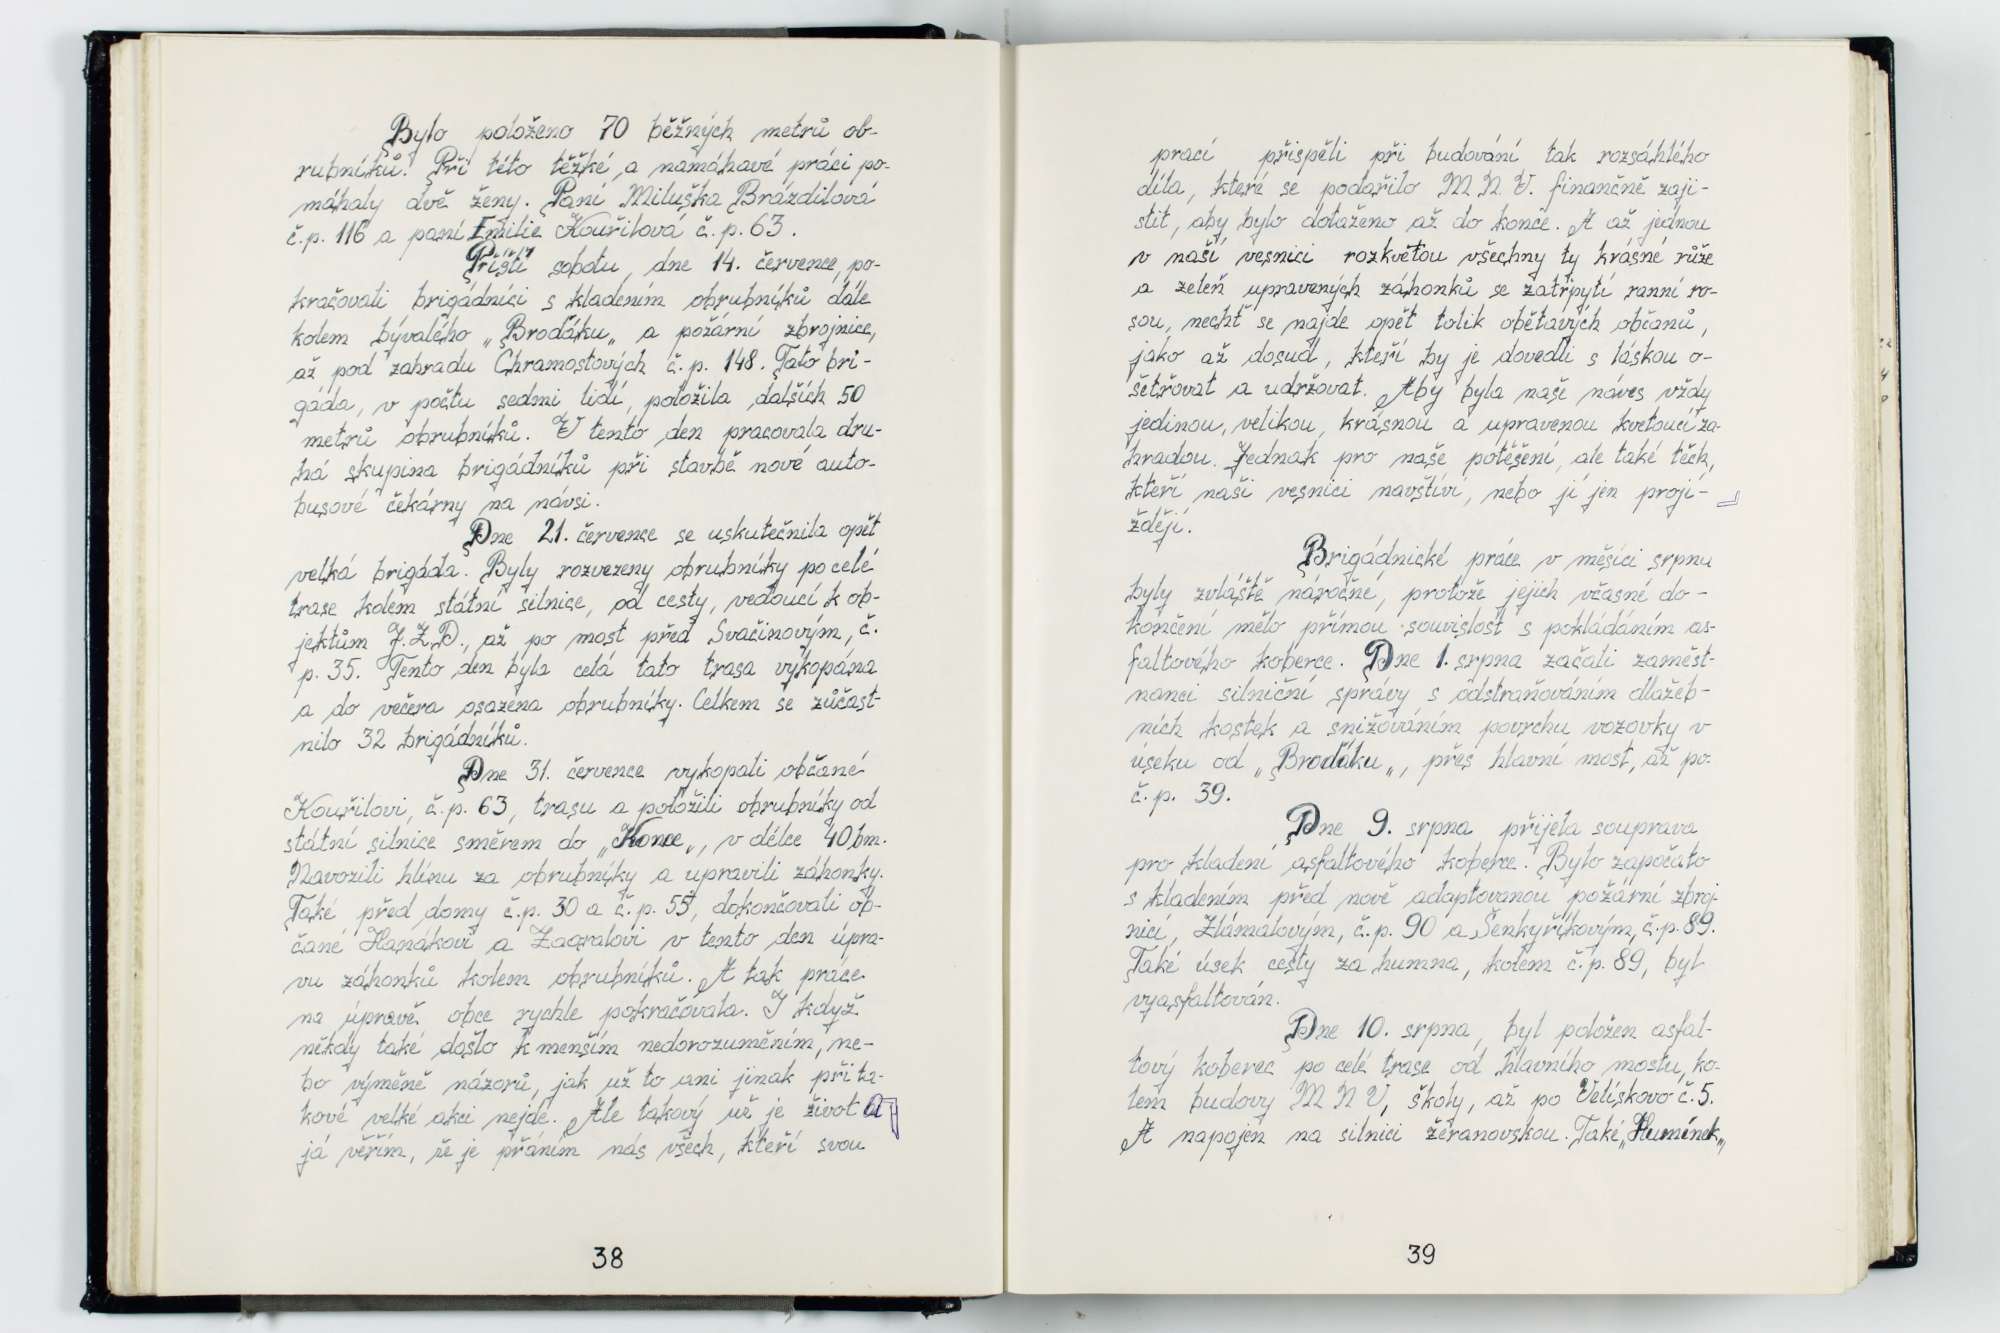 Bylo položeno 70 běžných metrů ob-
rubníků. Při této těžké a namáhavé práci po-
máhaly dvě ženy. Paní Miluška Brázdilová
č.p. 116 a paní Emilie Kouřilová č.p. 63.
Příští sobotu, dne 14. července, po-
kračovali brigádníci s kladením obrubníků dále
kolem bývalého „Broďáku„ a požární zbrojnice,
až pod zahradu Chramostových č.p. 148. Tato bri-
gáda, v počtu sedmi lidí, položila dalších 50
metrů obrubníků. V tento den pracovala dru-
há skupina brigádníků při stavbě nové auto-
busové čekárny na návsi.
Dne 21. července se uskutečnila opět
velká brigáda. Byly rozvezeny obrubníky po celé
trase kolem státní silnice, od cesty, vedoucí k ob-
jektům J.Z.D., až po most před Svačinovým, č.
p. 35. Tento den byla celá tato trasa vykopána
a do večera osazena obrubníky. Celkem se zůčast-
nilo 32 brigádníků.
Dne 31. července vykopali občané
Kouřilovi, č.p. 63, trasu a položili obrubníky od
státní silnice směrem do „Konce„, v délce 40 bm.
Navozili hlínu za obrubníky a upravili záhonky.
Také před domy č.p. 30 a č.p. 55, dokončovali ob-
čané Hanákovi a Zagralovi v tento den úpra-
vu záhonků kolem obrubníků. A tak práce
na úpravě obce rychle pokračovala. I když
někdy také došlo k menším nedorozuměním, ne-
bo výměně názorů, jak už to ani jinak při ta-
kové velké akci nejde. Ale takový už je život a
já věřím, že je přáním nás všech, kteří svou
38
prací přispěli při budování tak rozsáhlého
díla, které se podařilo M.N.V. finančně zaji-
stit, aby bylo dotaženo až do konce. A až jednou
v naší vesnici rozkvetou všechny ty krásné růže
a zeleň upravených záhonků se zatřpytí ranní ro-
sou, nechť se najde opět tolik obětavých občanů,
jako až dosud, kteří by je dovedli s láskou o-
šetřovat a udržovat. Aby byla naše náves vždy
jedinou, velikou, krásnou a upravenou kvetoucí za-
hradou. Jednak pro naše potěšení, ale také těch,
kteří naši vesnici navštíví, nebo jí jen projí-
ždějí.
Brigádnické práce v měsíci srpnu
byly zvláště náročné, protože jejich včasné do-
končení mělo přímou souvislost s pokládáním as-
faltového koberce. Dne 1. srpna začali zaměst-
nanci silniční správy s odstraňováním dlažeb-
ních kostek a snižováním povrchu vozovky v
úseku od „Broďáku„, přes hlavní most, až po
č.p. 39.
Dne 9. srpna přijela souprava
pro kladení asfaltového koberce. Bylo započato
s kladením před nově adaptovanou požární zbroj-
nicí, Zlámalovým, č.p. 90 a Šenkyříkovým, č.p. 89.
Také úsek cesty za humna, kolem č.p. 89, byl
vyasfaltován.
Dne 10. srpna, byl položen asfal-
tový koberec po celé trase od hlavního mostu, ko-
lem budovy M N V, školy, až po Velískovo č. 5.
A napojen na silnici žeranovskou. Také „Humínek„
39